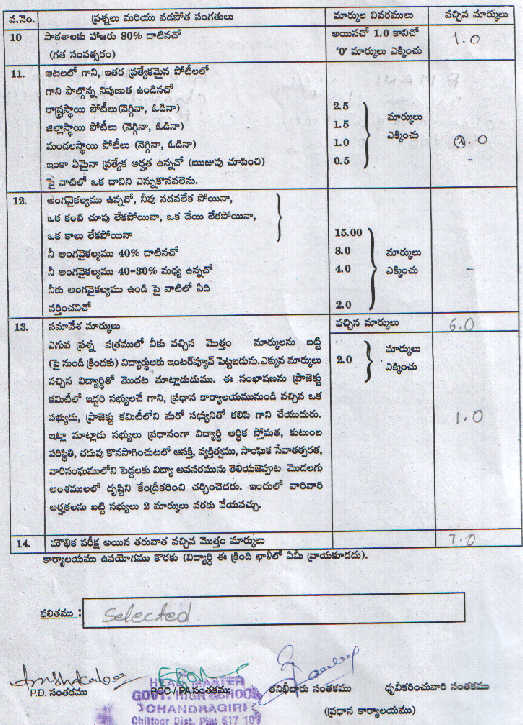 వ.నెం. ప్రశ్నలు మరియు వడపోత సంగతులు మార్కుల వివరములు వచ్చిన మార్కులు
10 పాఠశాలకు హాజరు 80% దాటినచో అయినచో 1.0 కానిచో 1.0
(గత సంవత్సరం) '0' మార్కులు ఎక్కించు
11. ఆటలలో గాని, ఇతర ప్రత్యేకమైన పోటీలలో
గాని పాల్గొన్న నిపుణత ఉండినచో
రాష్ట్రస్థాయి పోటీలు (నెగ్గినా, ఓడినా) 2.5 మార్కులు
జిల్లాస్థాయి పోటీలు (నెగ్గినా, ఓడినా) 1.5 ఎక్కించు
మండలస్థాయి పోటీలు (నెగ్గినా, ఓడినా) 1.0
ఇంకా ఏమైనా ప్రత్యేక అర్హత ఉన్నచో (ఋజువు చూపించి) 0.5
పై వాటిలో ఒక దానిని ఎన్నుకొనవలెను.
12. అంగవైకల్యము ఉన్నచో, నీవు నడవలేక పోయినా,
ఒక కంటి చూపు లేకపోయినా, ఒక చేయి లేకపోయినా,
ఒక కాలు లేకపోయినా 15.00
నీ అంగవైకల్యము 40% దాటినచో 8.0 మార్కులు
నీ అంగవైకల్యము 40-30% మధ్య ఉన్నచో 4.0 ఎక్కించు -
నీకు అంగవైకల్యము ఉండి పై వాటిలో ఏది
వర్తించనిచో 2.0
13. సమావేశ మార్కులు వచ్చిన మార్కులు 6.0
ఎగువ ప్రశ్న పత్రములో నీకు వచ్చిన మొత్తం మార్కులను బట్టి మార్కులు
(పై నుండి క్రిందకు) విద్యార్థులకు ఇంటర్వ్యూన్ పెట్టబడును. ఎక్కువ మార్కులు 2.0 ఎక్కించు
వచ్చిన విద్యార్థితో మొదట మాట్లాడుదుము. ఈ సంభాషణను ప్రాజెక్టు
కమిటీలో ఇద్దరి సభ్యులచే గాని, ప్రధాన కార్యాలయమునుండి వచ్చిన ఒక
సభ్యుడు, ప్రాజెక్టు కమిటీలోని మరో సభ్యునితో కలిపి గాని చేయుదురు. 1.0
ఇట్లా మాట్లాడు సభ్యులు ప్రధానంగా విద్యార్థి ఆర్థిక స్తోమత, కుటుంబ
పరిస్థితి, చదువు కొనసాగించుటలో ఆసక్తి, వ్యక్తిత్వము, సాంఘిక సేవాతత్పరత,
వారిసంఘములోని పెద్దలకు విద్యా అవసరమును తెలియజెప్పుట మొదలగు
అంశములలో దృష్టిని కేంద్రీకరించి చర్చించెదరు. ఇందులో వారివారి
అర్హతలను బట్టి సభ్యులు 2 మార్కులు వరకు వేయవచ్చు.
14. మౌఖిక పరీక్ష అయిన తరువాత వచ్చిన మొత్తం మార్కులు 7.0
కార్యాలయము ఉపయోగము కొరకు (విద్యార్థి ఈ క్రింది ఖాళీలో ఏమీ వ్రాయకూడదు).
ఫలితము : Selected
P.D. సంతకము PGC / PA సంతకము తనిఖీదారు సంతకము ధృవీకరించువారి సంతకము
(ప్రధాన కార్యాలయం)
HEAD MASTER
GOVT. HIGH SCHOOL
CHANDRAGIRI
Chittoor Dist. Pin: 517 101